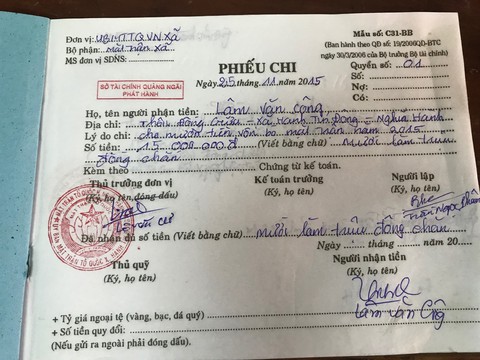 Đơn vị: UBMTTQVN Xã
Mẫu số: C31-BB
Bộ phận: mặt trận xã
(Ban hành theo QĐ số: 19/2006QĐ-BTC
MS đơn vị SDNS:
ngày 30/3/2006 của Bộ trưởng Bộ tài chính)
PHIẾU CHI
Quyển số: 01
SỞ TÀI CHÍNH QUẢNG NGÃI
PHÁT HÀNH
Ngày 25 tháng 11 năm 2015
Số:
Nợ:
Có:
Họ, tên người nhận tiền: Lâm văn công
Địa chỉ: Thôn Đông - xã Hành Tín Đông - Nghĩa Hành
Lý do chi: cho mượn tiền vốn mặt trận năm 2015
Số tiền: 15.000.000đ (Viết bằng chữ) mười lăm triệu
đồng chẵn
Kèm theo Chứng từ kế toán.
Thủ trưởng đơn vị Kế toán trưởng Người lập
(Ký, họ tên, đóng dấu) (Ký, họ tên) (Ký, họ tên)
Đã nhận đủ số tiền (Viết bằng chữ) mười lăm triệu đồng chẵn
Ngày tháng năm 20
Thủ quỹ Người nhận tiền
(Ký, họ tên) (Ký, họ tên)
Lâm văn Công
+ Tỷ giá ngoại tệ (vàng, bạc, đá quý)
+ Số tiền quy đổi:
(Nếu gửi ra ngoài phải đóng dấu).